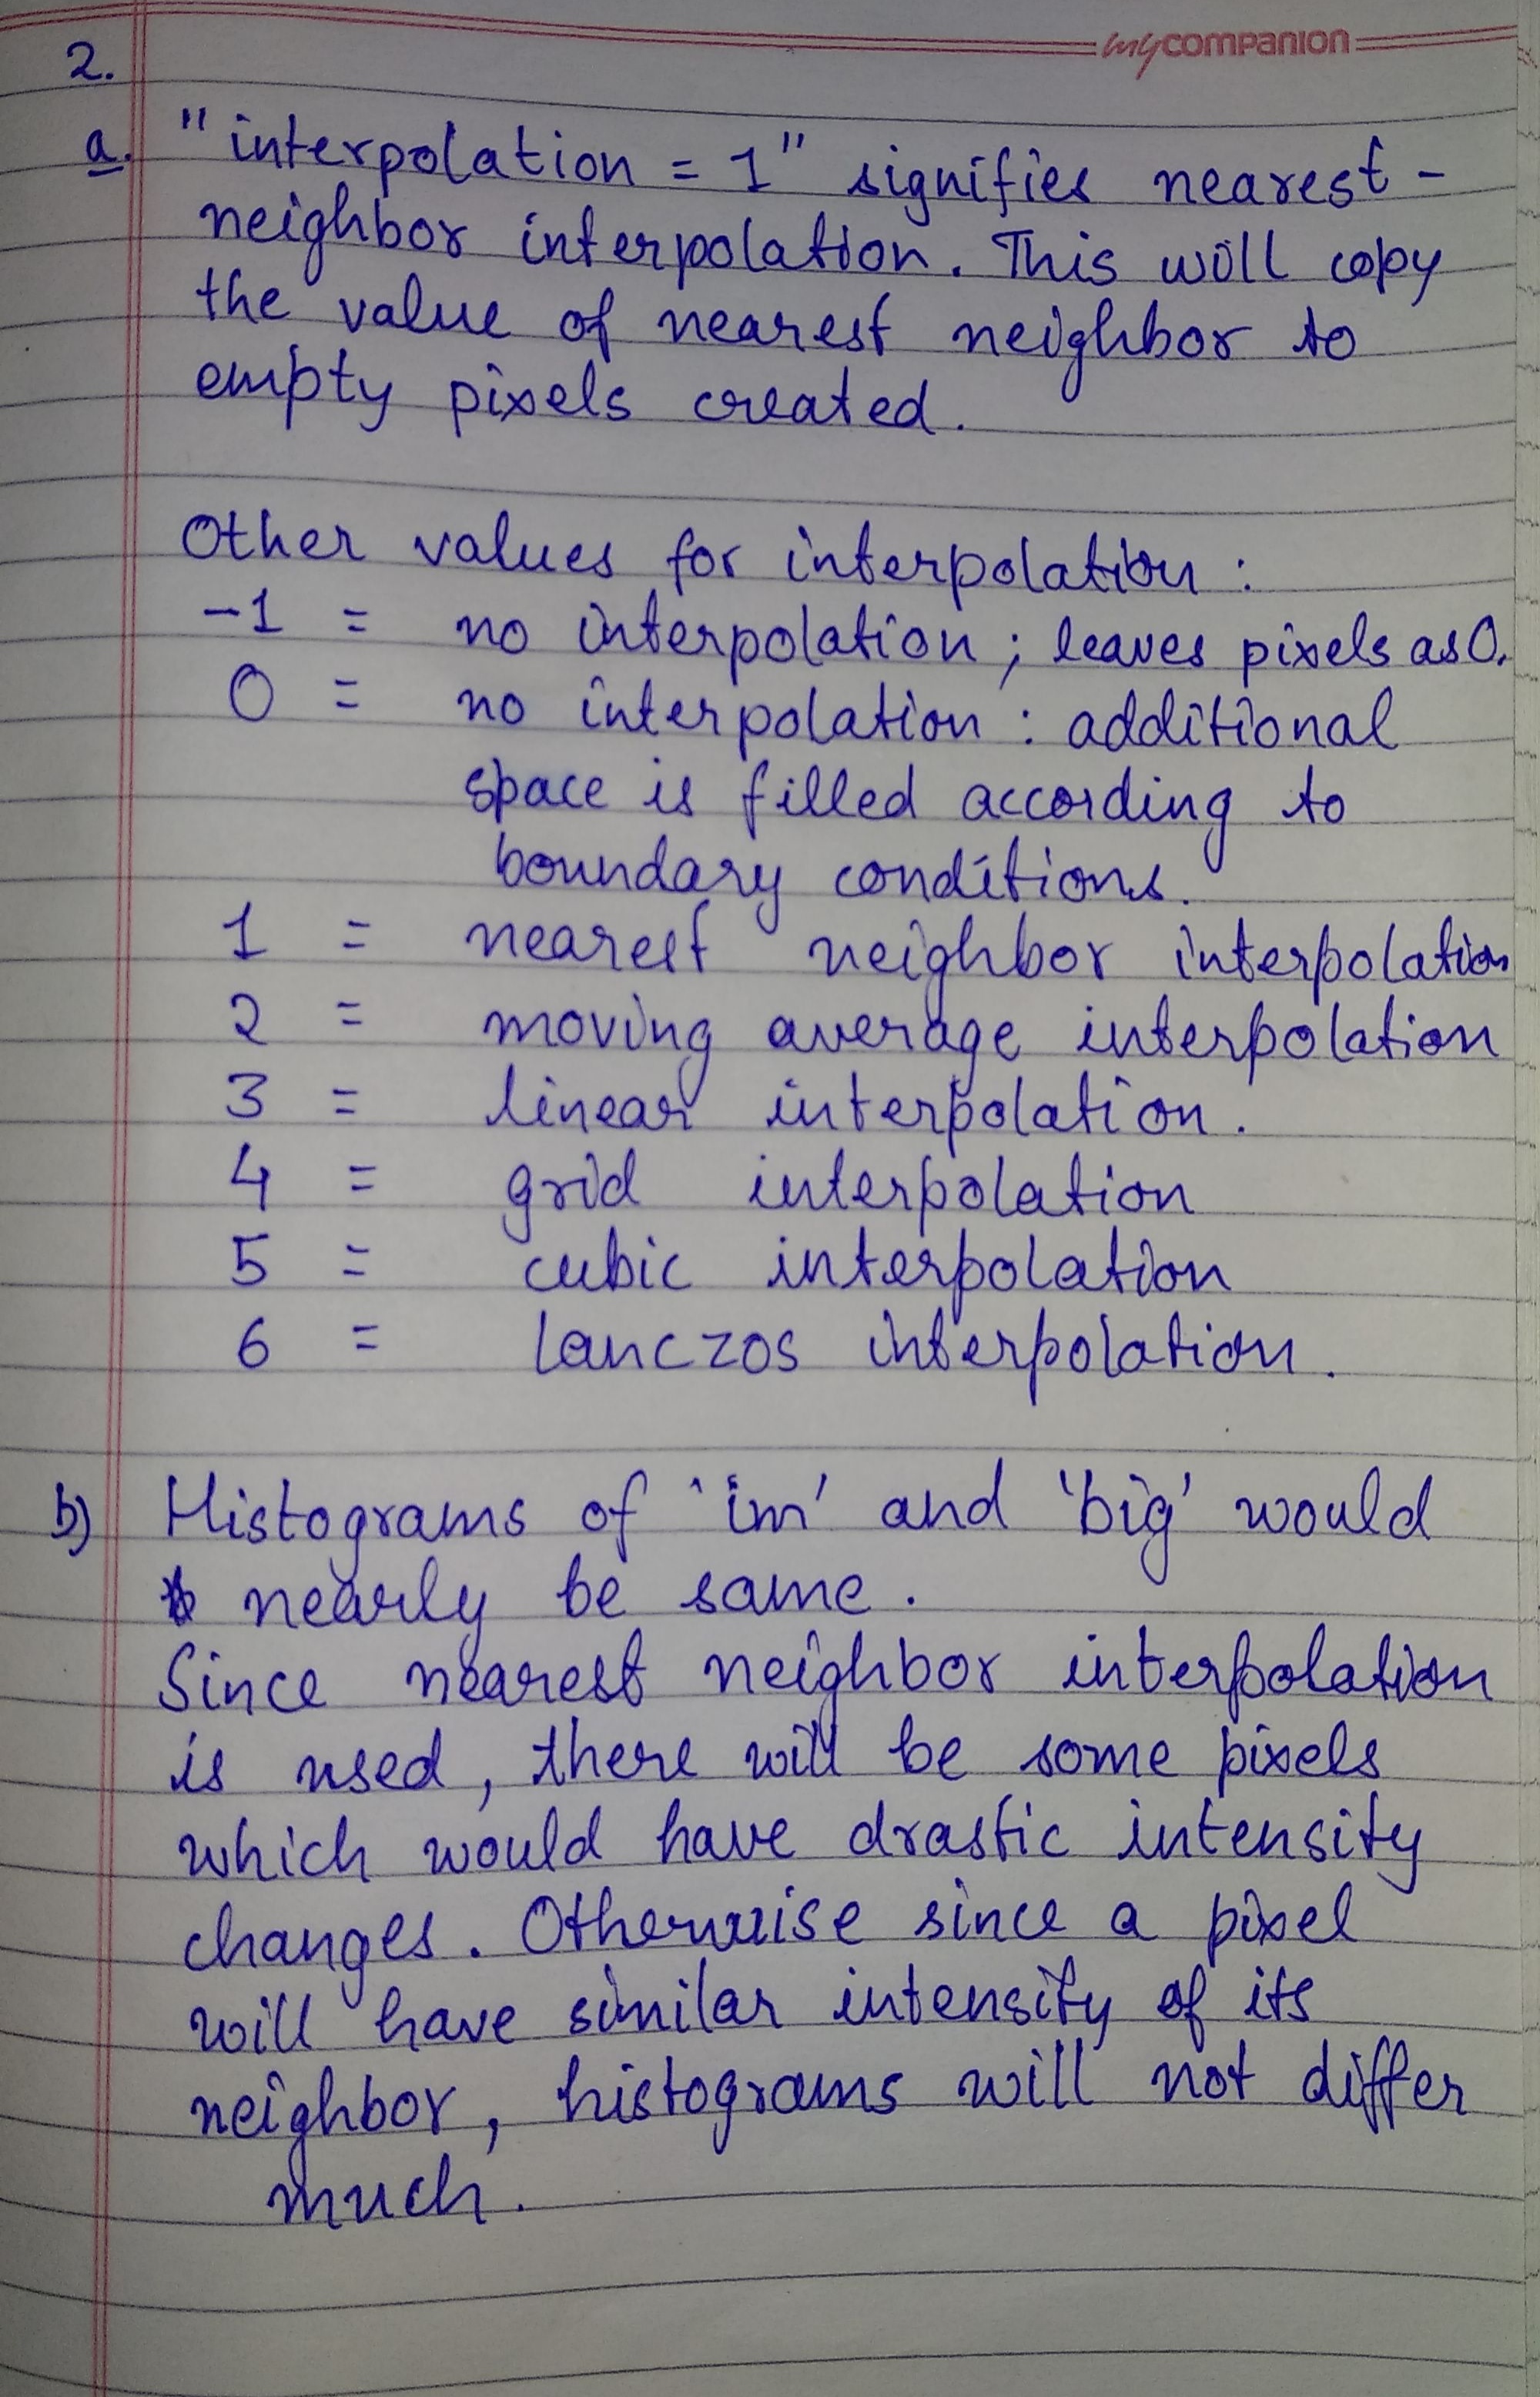 mycompanion
2.
a. "interpolation = 1" signifies nearest-
neighbor interpolation. This will copy
the value of nearest neighbor to
empty pixels created.
Other values for interpolation :
-1 = no interpolation ; leaves pixels as 0.
0 = no interpolation : additional
space is filled according to
boundary conditions.
1 = nearest neighbor interpolation
2 = moving average interpolation
3 = linear interpolation.
4 = grid interpolation
5 = cubic interpolation
6 = lanczos interpolation.
b) Histograms of 'im' and 'big' would
nearly be same.
Since nearest neighbor interpolation
is used, there will be some pixels
which would have drastic intensity
changes. Otherwise since a pixel
will have similar intensity of its
neighbor, histograms will not differ
much.